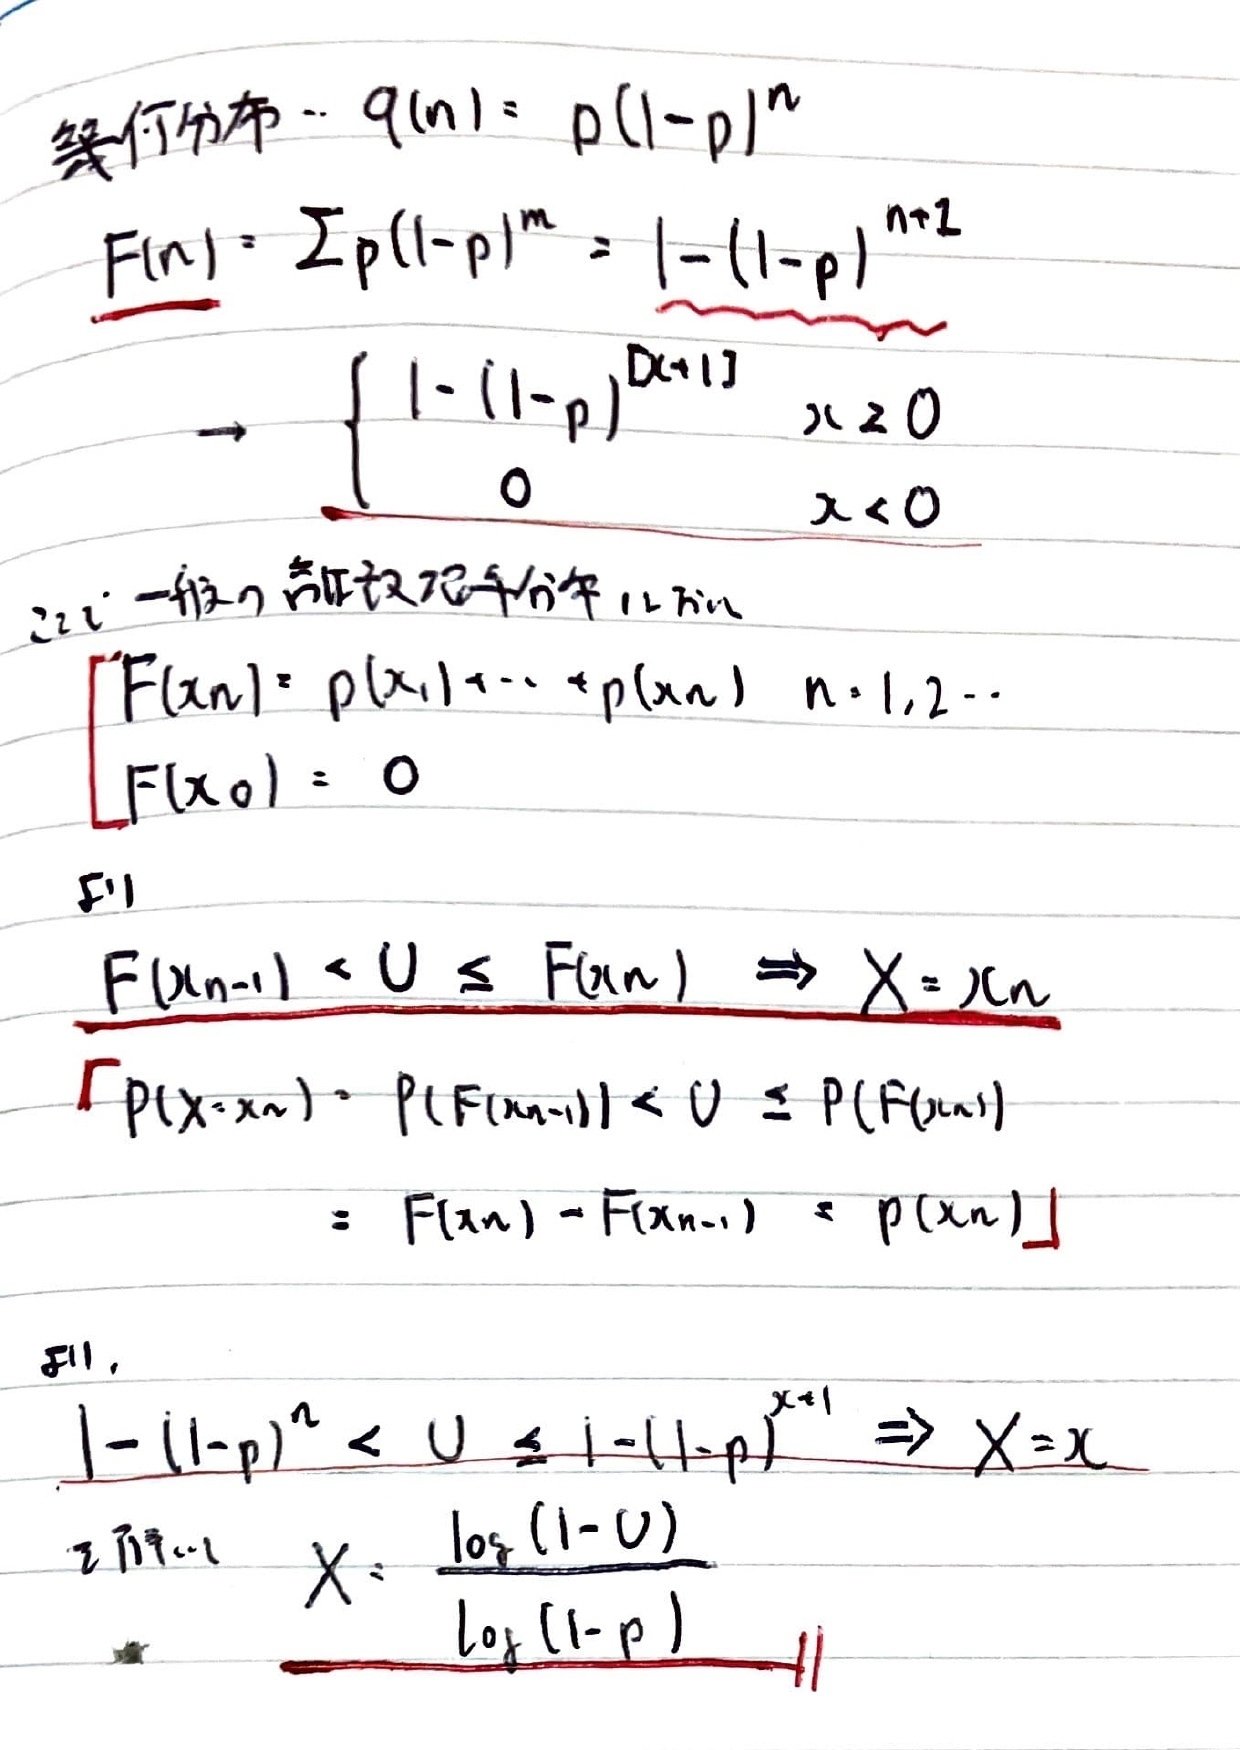 幾何分布‥ q(n) = p(1-p)^n
F(n) = Σp(1-p)^m = 1-(1-p)^{n+1}
→ { 1-(1-p)^{[x+1]} x≥0
0 x<0
ここで 一般の 離散確率分布において
F(xn) = p(x1)+…+p(xn) n=1,2‥
F(x0) = 0
より
F(xn-1) < U ≤ F(xn) ⇒ X=xn
「P(X=xn) = P(F(xn-1)) < U ≤ P(F(xn))
= F(xn) - F(xn-1) = p(xn)」
より,
1-(1-p)^n < U ≤ 1-(1-p)^{x+1} ⇒ X=x
を解いて X = log(1-U) / log(1-p)